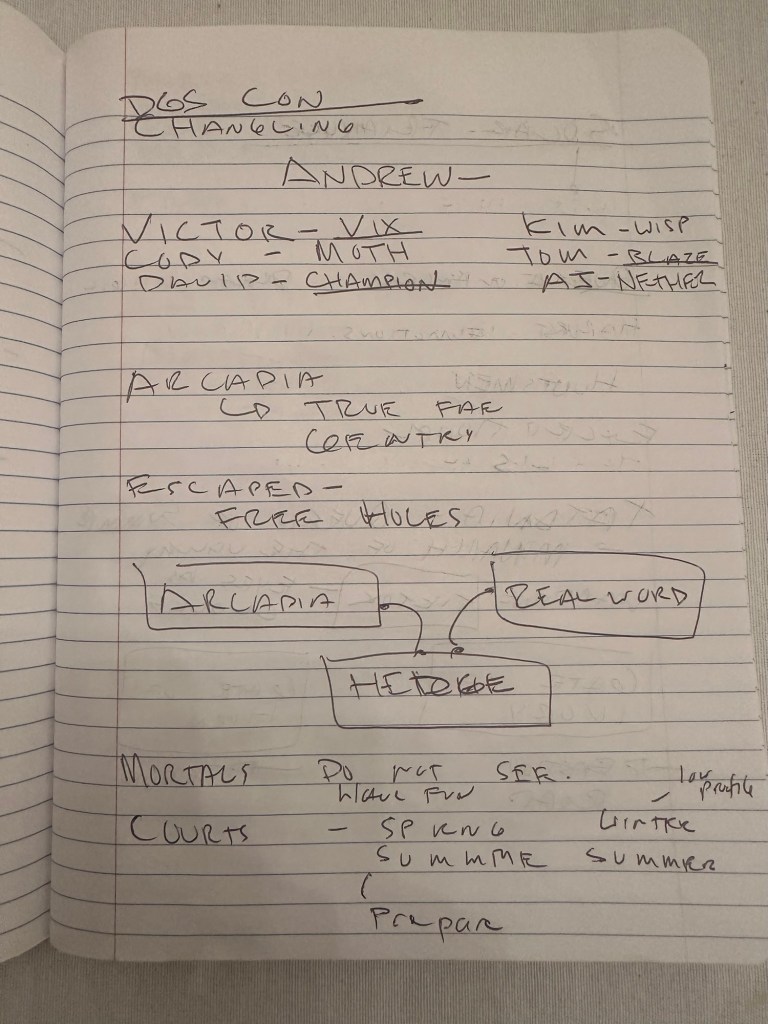 DGS CON
CHANGLING
ANDREW—
VICTOR – VIX KIM – WISP
CODY – MOTH TOM – BLAZE
DAVID – CHAMPION AJ – NETHER
ARCADIA
↳ TRUE FAE
COENTRY
ESCAPED –
FREE HOLES
ARCADIA REAL WORD
MORTALS DO NOT SEE.
HAVE FUN low profile
COURTS – SPRNG WINTER
SUMMME SUMMER
Prepar